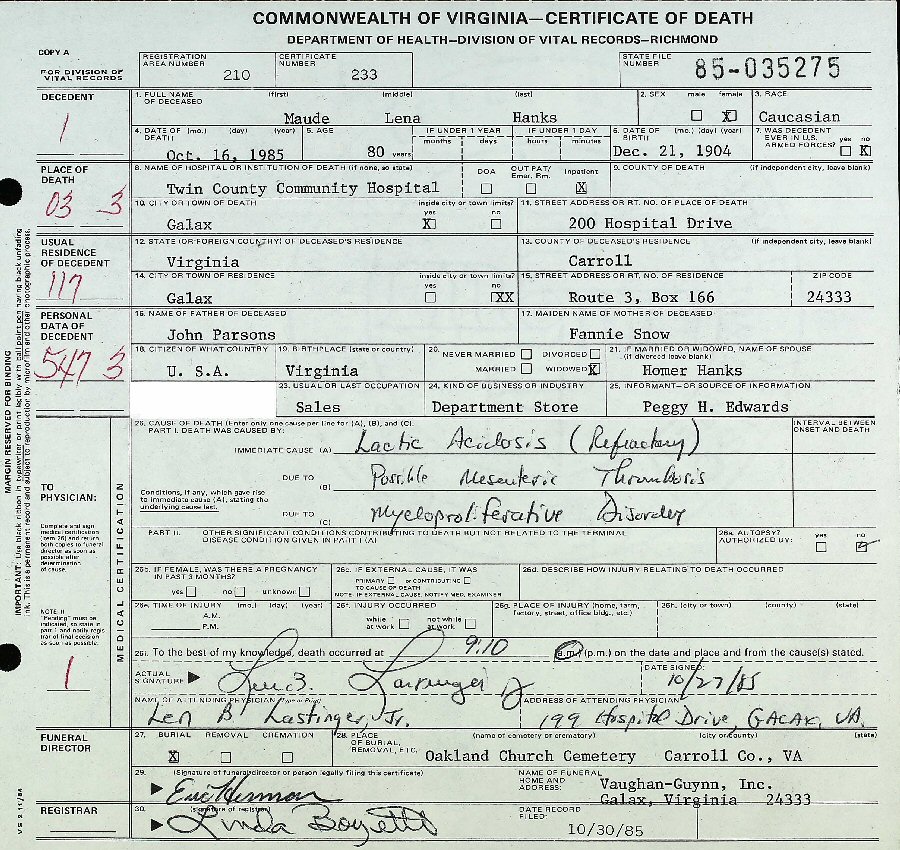 COMMONWEALTH OF VIRGINIA—CERTIFICATE OF DEATH
DEPARTMENT OF HEALTH—DIVISION OF VITAL RECORDS—RICHMOND
COPY A
FOR DIVISION OF VITAL RECORDS
REGISTRATION AREA NUMBER 210
CERTIFICATE NUMBER 233
STATE FILE NUMBER 85-035275
DECEDENT
1
1. FULL NAME OF DECEASED (first) (middle) (last)
Maude Lena Hanks
2. SEX male female X
3. RACE
Caucasian
4. DATE OF DEATH (mo.) (day) (year)
Oct. 16, 1985
5. AGE
80 years
IF UNDER 1 YEAR months days
IF UNDER 1 DAY hours minutes
6. DATE OF BIRTH (mo.) (day) (year)
Dec. 21, 1904
7. WAS DECEDENT EVER IN U.S. ARMED FORCES? yes no X
PLACE OF DEATH
03 3
8. NAME OF HOSPITAL OR INSTITUTION OF DEATH (if none, so state)
Twin County Community Hospital
DOA OUT PAT/ Emer. Rm. Inpatient X
9. COUNTY OF DEATH (if independent city, leave blank)
10. CITY OR TOWN OF DEATH inside city or town limits? yes no
Galax X
11. STREET ADDRESS OR RT. NO. OF PLACE OF DEATH
200 Hospital Drive
USUAL RESIDENCE OF DECEDENT
117
12. STATE (OR FOREIGN COUNTRY) OF DECEASED'S RESIDENCE
Virginia
13. COUNTY OF DECEASED'S RESIDENCE (if independent city, leave blank)
Carroll
14. CITY OR TOWN OF RESIDENCE inside city or town limits? yes no
Galax XX
15. STREET ADDRESS OR RT. NO. OF RESIDENCE ZIP CODE
Route 3, Box 166 24333
PERSONAL DATA OF DECEDENT
547 3
16. NAME OF FATHER OF DECEASED
John Parsons
17. MAIDEN NAME OF MOTHER OF DECEASED
Fannie Snow
18. CITIZEN OF WHAT COUNTRY
U. S.A.
19. BIRTHPLACE (state or country)
Virginia
20. NEVER MARRIED DIVORCED
MARRIED WIDOWED X
21. IF MARRIED OR WIDOWED, NAME OF SPOUSE (if divorced leave blank)
Homer Hanks
23. USUAL OR LAST OCCUPATION
Sales
24. KIND OF BUSINESS OR INDUSTRY
Department Store
25. INFORMANT—OR SOURCE OF INFORMATION
Peggy H. Edwards
MARGIN RESERVED FOR BINDING
IMPORTANT: Use black ribbon in typewriter or print legibly with ball point pen having black unfading
ink. This is a permanent record and subject to reproduction by microfilm and other photographic process.
TO PHYSICIAN:
Complete and sign medical certification (item 26) and return both copies to funeral director as soon as possible after determination of cause.
NOTE II
"Pending" must be indicated, so state in part I and notify registrar of final decision as soon as possible.
1
MEDICAL CERTIFICATION
26. CAUSE OF DEATH (Enter only one cause per line for (A), (B), and (C).
PART I. DEATH WAS CAUSED BY:
INTERVAL BETWEEN ONSET AND DEATH
IMMEDIATE CAUSE (A) Lactic Acidosis (Refractory)
DUE TO (B) Possible Mesenteric Thrombosis
Conditions, if any, which gave rise to immediate cause (A), stating the underlying cause last.
DUE TO (C) Myeloproliferative Disorder
PART II. OTHER SIGNIFICANT CONDITIONS CONTRIBUTING TO DEATH BUT NOT RELATED TO THE TERMINAL DISEASE CONDITION GIVEN IN PART I (A)
26a. AUTOPSY? AUTHORIZED BY: yes no
26b. IF FEMALE, WAS THERE A PREGNANCY IN PAST 3 MONTHS?
yes no unknown
26c. IF EXTERNAL CAUSE, IT WAS
PRIMARY or CONTRIBUTING
TO CAUSE OF DEATH
NOTE: IF EXTERNAL CAUSE, NOTIFY MED. EXAMINER
26d. DESCRIBE HOW INJURY RELATING TO DEATH OCCURRED
26e. TIME OF INJURY (mo.) (day) (year)
A.M.
P.M.
26f. INJURY OCCURRED
while at work not while at work
26g. PLACE OF INJURY (home, farm, factory, street, office bldg., etc.)
26h. (city or town) (county) (state)
26i. To the best of my knowledge, death occurred at 9:10 (a.m.) (p.m.) on the date and place and from the cause(s) stated.
ACTUAL SIGNATURE Len B. Lastinger Jr
DATE SIGNED:
10/27/85
NAME OF ATTENDING PHYSICIAN (Type or Print)
Len B Lastinger, Jr.
ADDRESS OF ATTENDING PHYSICIAN
199 Hospital Drive, GALAX, VA.
FUNERAL DIRECTOR
27. BURIAL REMOVAL CREMATION
X
28. PLACE OF BURIAL, REMOVAL, ETC. (name of cemetery or crematory) (city or county) (state)
Oakland Church Cemetery Carroll Co., VA
29. (Signature of funeral director or person legally filing this certificate)
Eric Herman
NAME OF FUNERAL HOME AND ADDRESS:
Vaughan-Guynn, Inc.
Galax, Virginia 24333
REGISTRAR
30. (signature of registrar)
Linda
DATE RECORD FILED:
10/30/85
VS 2 11/84